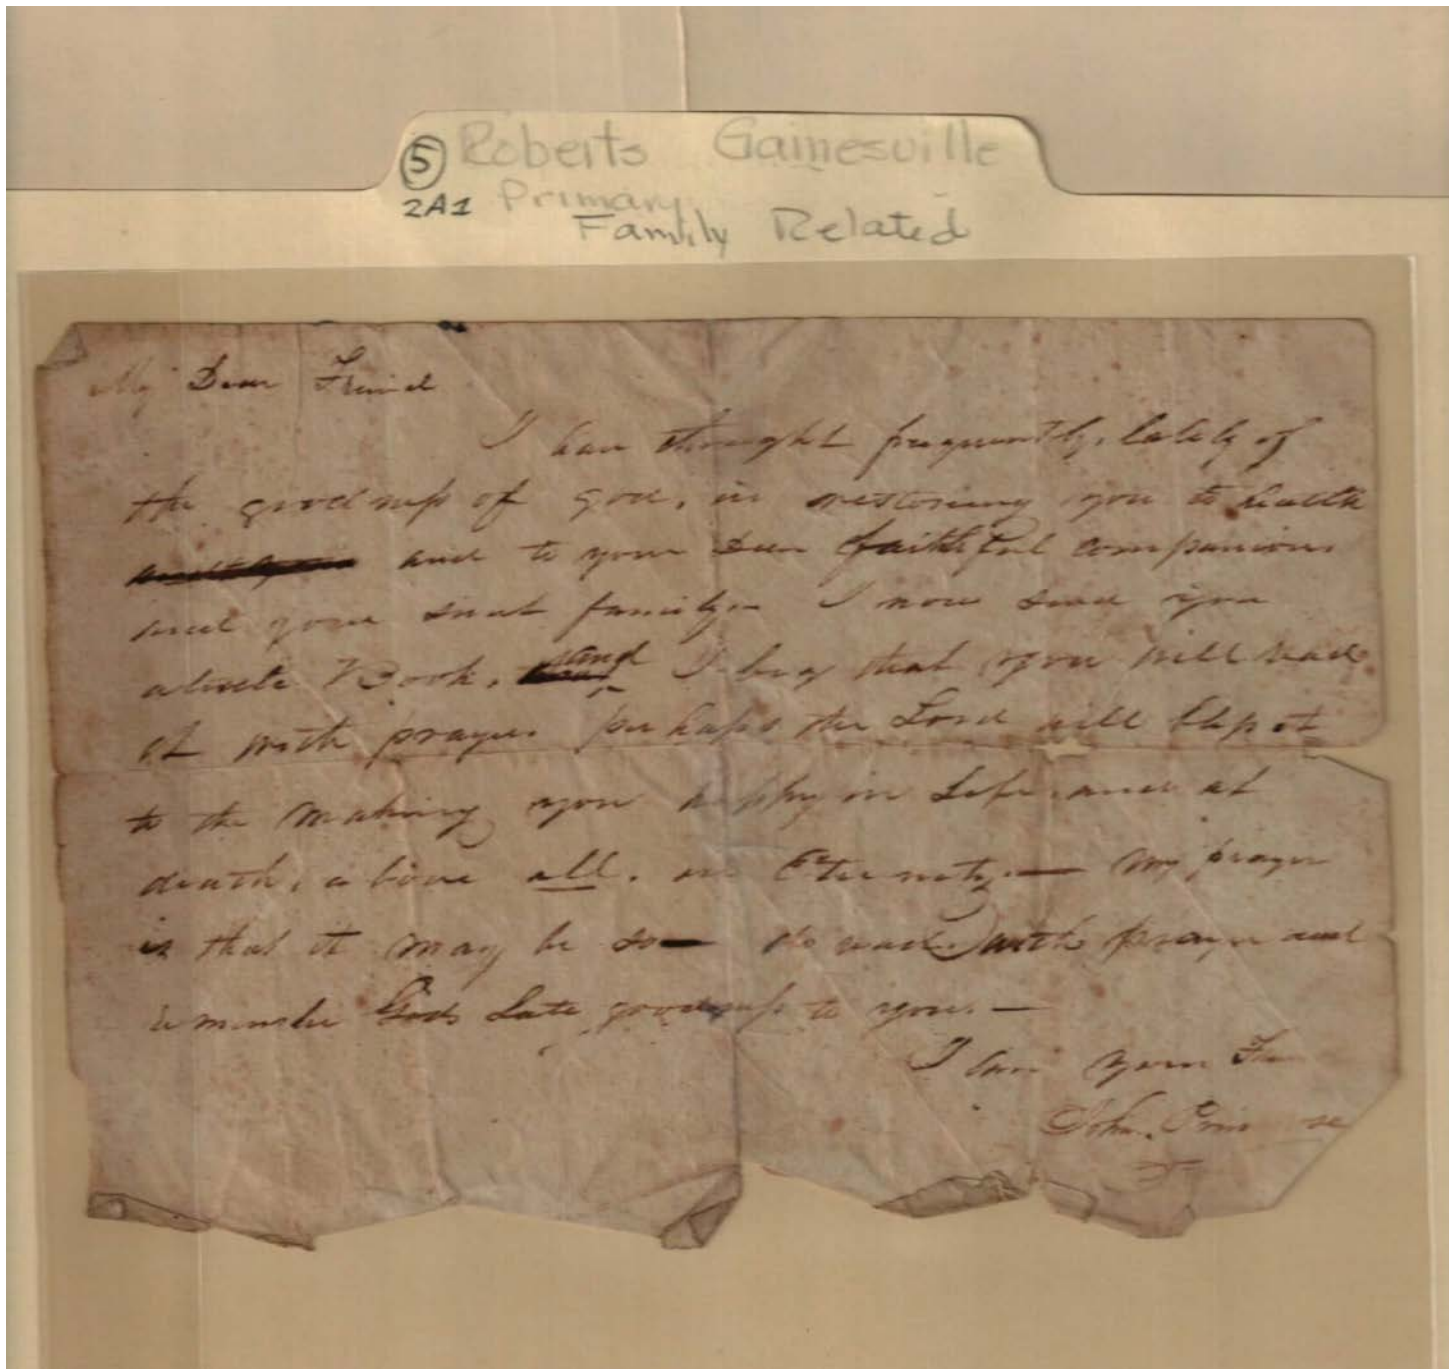 5 Roberts Gainesville
2A1 Primary
Family Related
My Dear Friend
I have thought frequently, lately of
the goodness of god, in restoring you to health
and to your Dear faithful companion
and your sweet family. I now send you
a little Book, and I beg that you will read
it with prayer perhaps the Lord will bless it
to the making you happy in Life and at
death, above all, in Eternity — My prayer
is that it may be so — do read with prayer and
remember Gods Late goodness to you. —
I am your
John